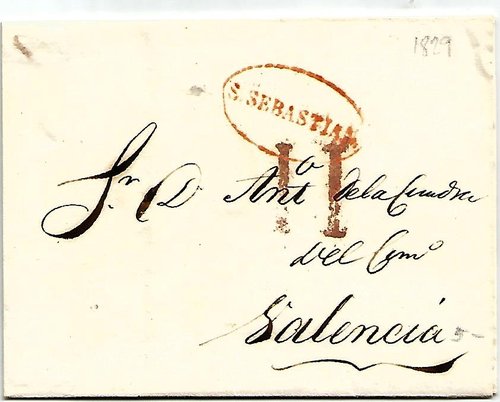 1829
S. SEBASTIAN
11
Sr. D. Antº de la Cuadra
del Comº
Valencia
5-